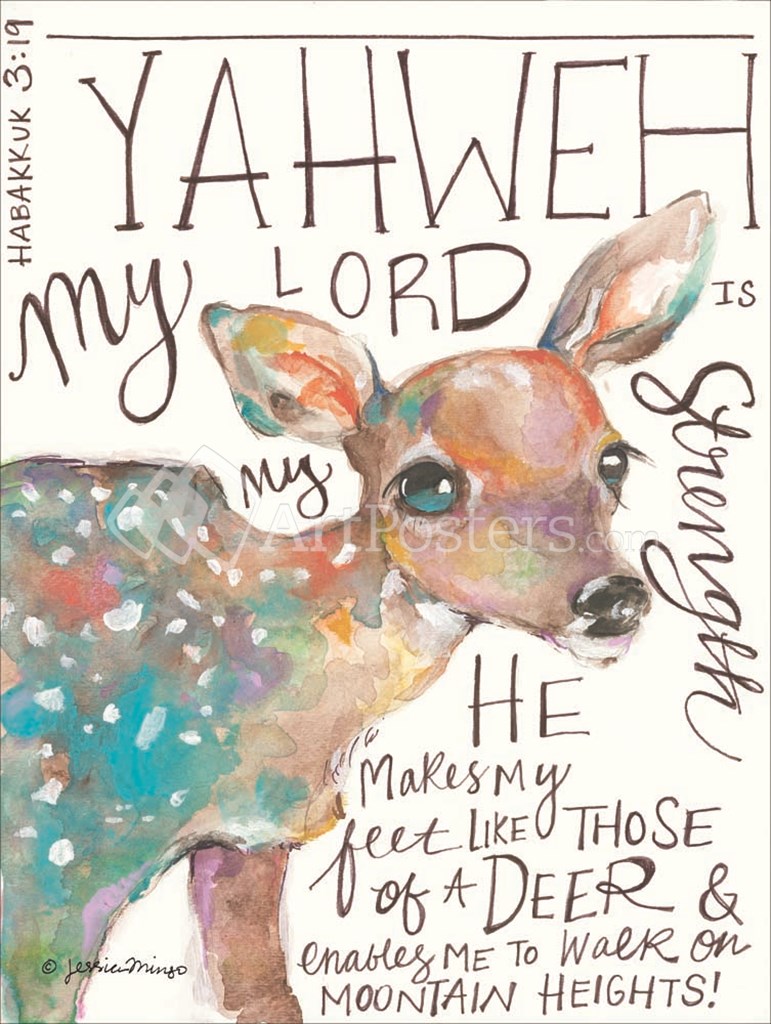 HABAKKUK 3:19
YAHWEH
my LORD IS
my Strength
HE
MAKES MY
feet LIKE THOSE
of A DEER &
enables ME TO WALK ON
MOONTAIN HEIGHTS!
© Jessica Mingo
ArtPosters.com